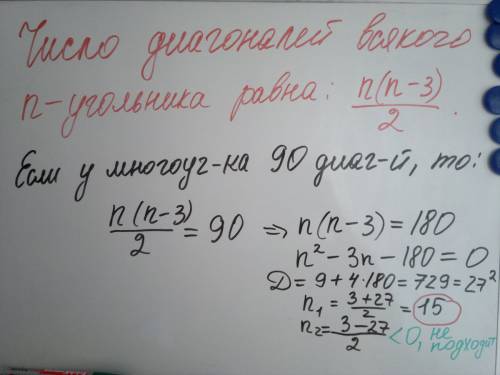 Число диагоналей всякого
n-угольника равна: n(n-3)/2.
Если у многоуг-на 90 диаг-й, то:
n(n-3)/2 = 90 => n(n-3) = 180
n² - 3n - 180 = 0
D = 9 + 4·180 = 729 = 27²
n₁ = (3+27)/2 = 15
n₂ = (3-27)/2 < 0, не подходит